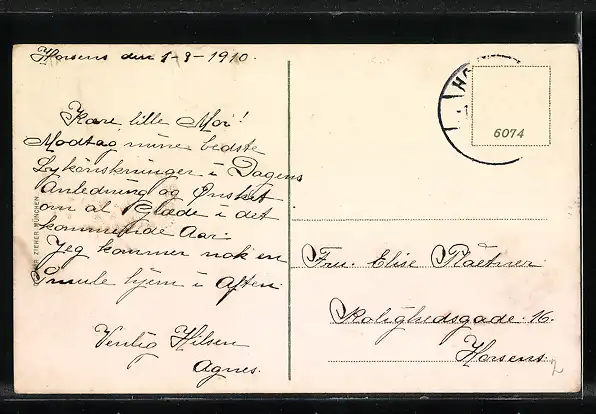 Horsens den 1-3-1910.
Kære lille Mor!
Modtag mine bedste
Lykönskninger i Dagens
Anledning og Ønsket
om al Glæde i det
kommende Aar.
Jeg kommer nok en
Smule hjem i Aften.
Venlig Hilsen
Agnes.
HO
6074
Fru. Elise Raetner
Rolighedsgade. 16.
Horsens.
ZIEHER MÜNCHEN